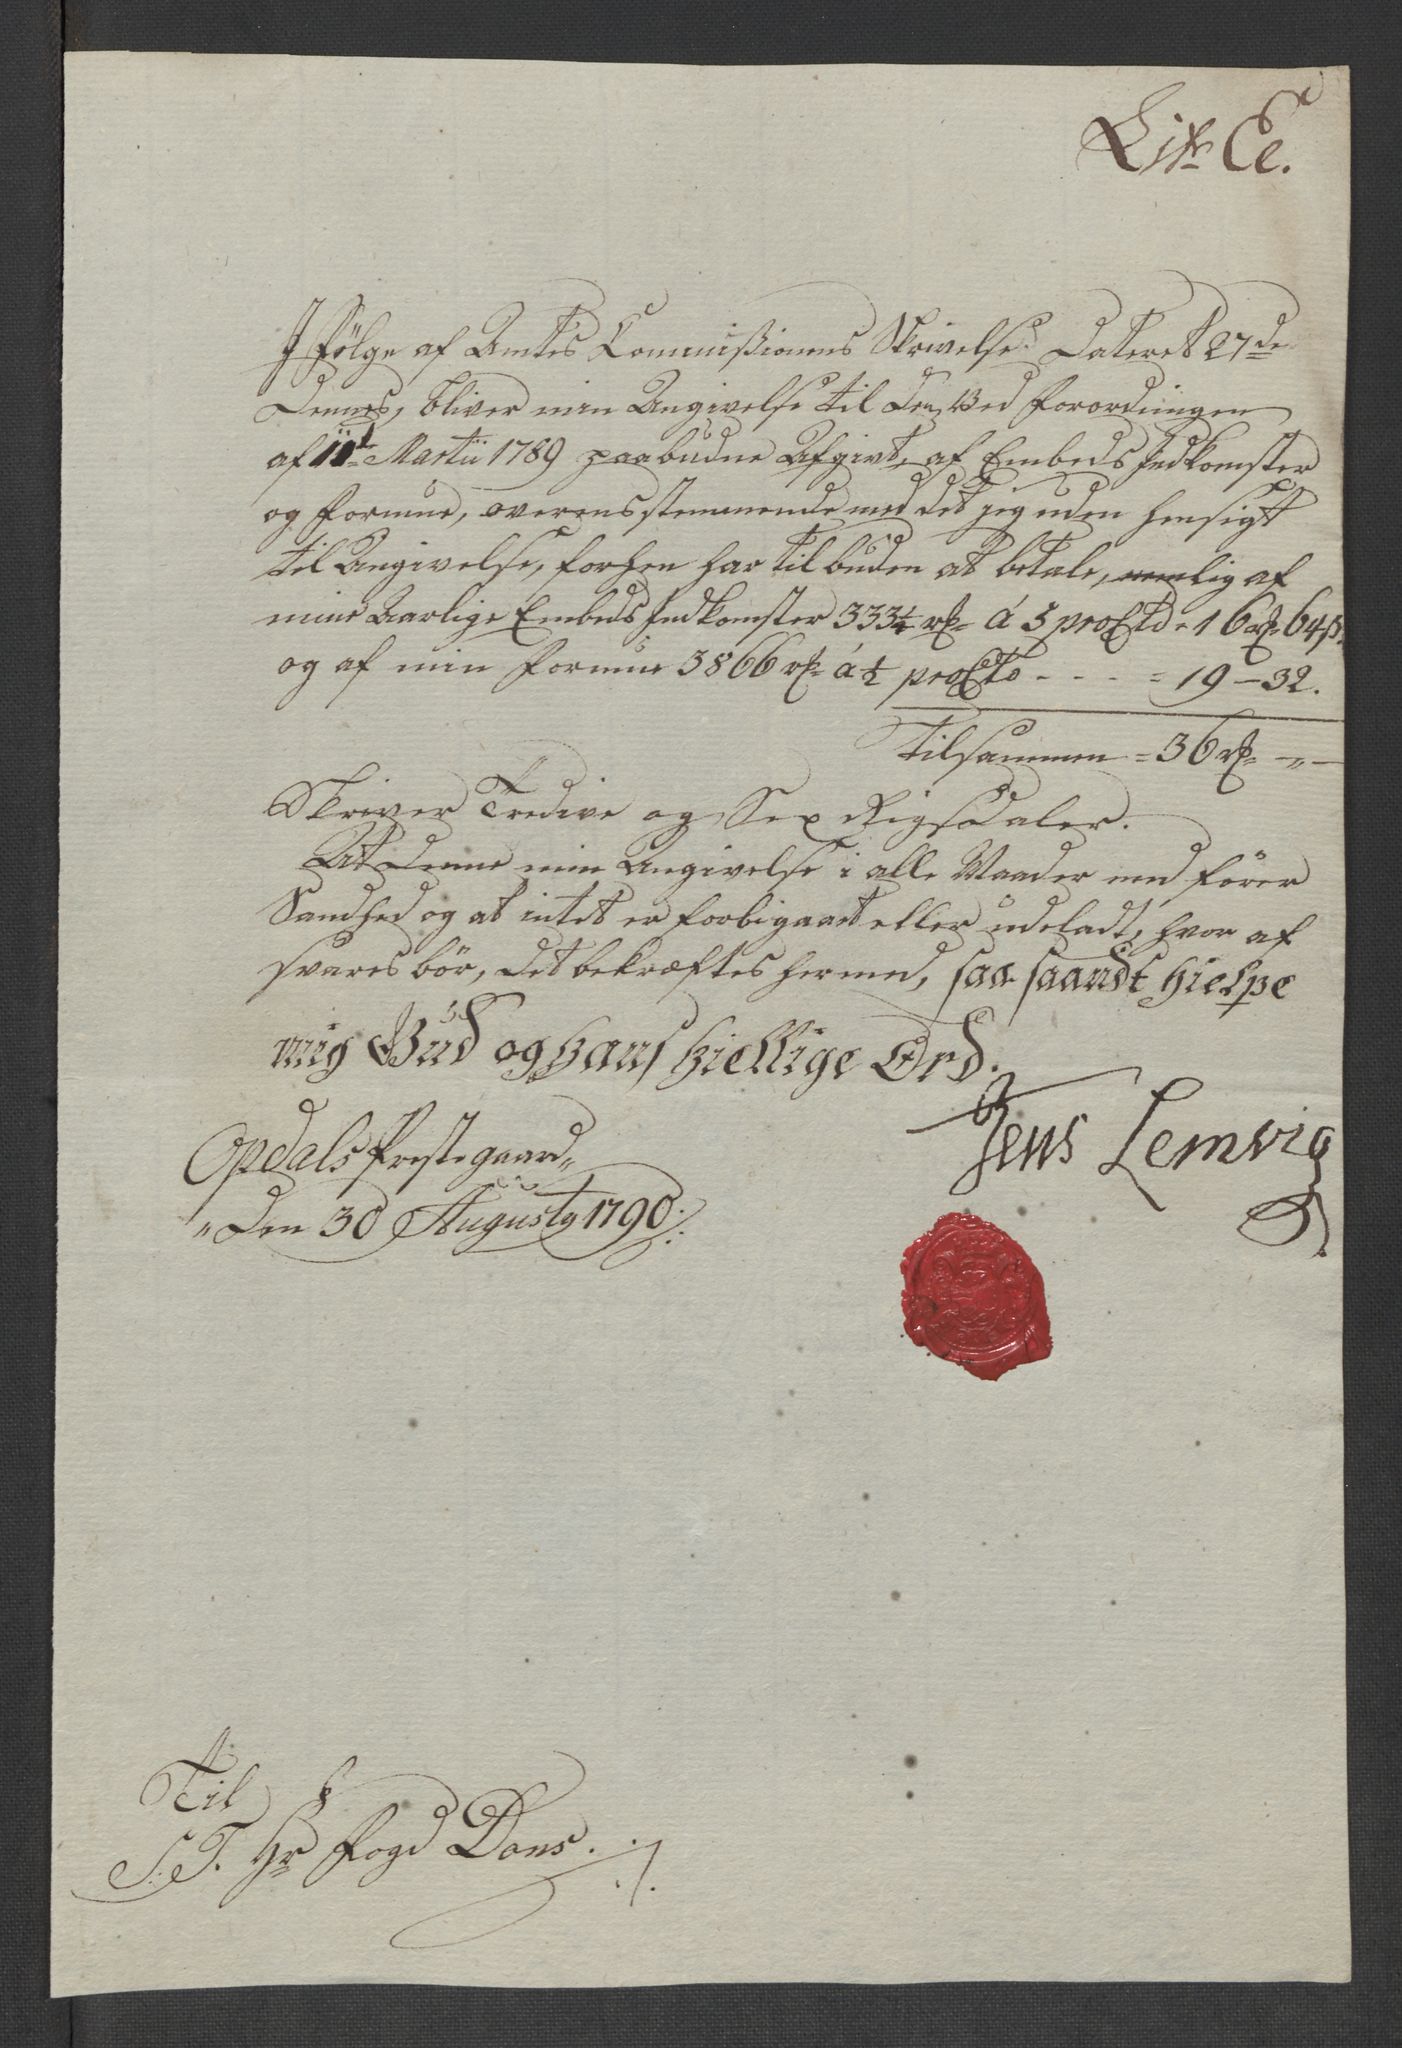 Litr Ee.
I Fölge af Amtes Commissionens Skrivelse Dateret 27de
Dennes, bliver min Angivelse til den ved Forordningen
af 11t Martii 1789 paabudne Afgivt af Embeds Indkomster
og Formue, overensstemmende med det jeg uden hensigt
til Angivelse, forhen har tilbuden at betale, nemlig af
mine Aarlige Embeds Indkomster 333¼ rd á 5 proCto = 16 rd 64 ß.
og af min Formue 3866 rd á ½ proCto - - - = 19 — 32.
tilsammen = 36 rd — „ —
Skriver Tredive og Sex Rigsdaler.
At denne min Angivelse i alle Maader medförer
Sandhed og at intet er forbigaaet eller udeladt, hvor af
svares bör, det bekræftes hermed, saa saandt hielpe
mig Gud og hans hiellige Ord.
Jens Lemvig
Opdals Prestegaard
Den 30 Augusty 1790
Til
S. T. Hr Fogd Dons.